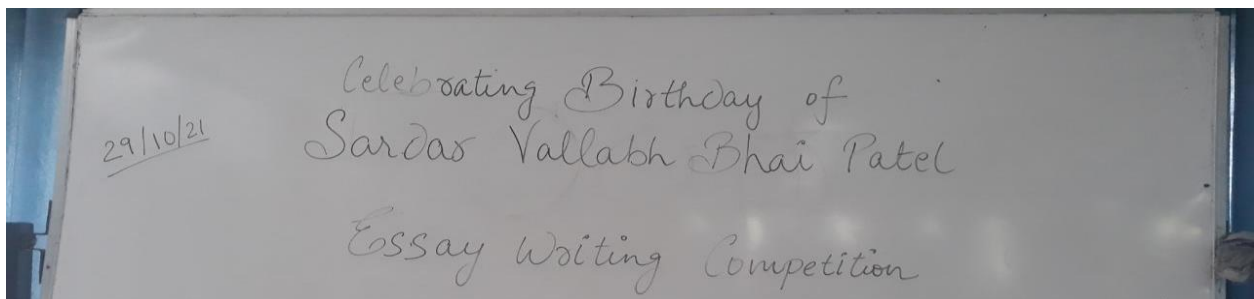 Celebrating Birthday of
29/10/21
Sardar Vallabh Bhai Patel
Essay Writing Competition